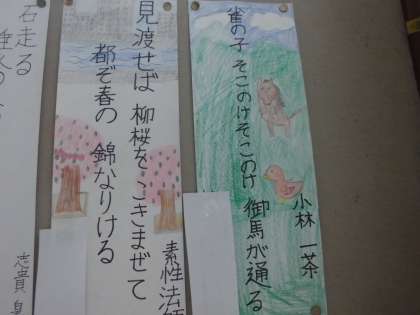 雀の子 そこのけそこのけ 御馬が通る
小林 一茶
見渡せば 柳桜を こきまぜて
都ぞ春の 錦なりける
素性法師
石走る
志貴皇